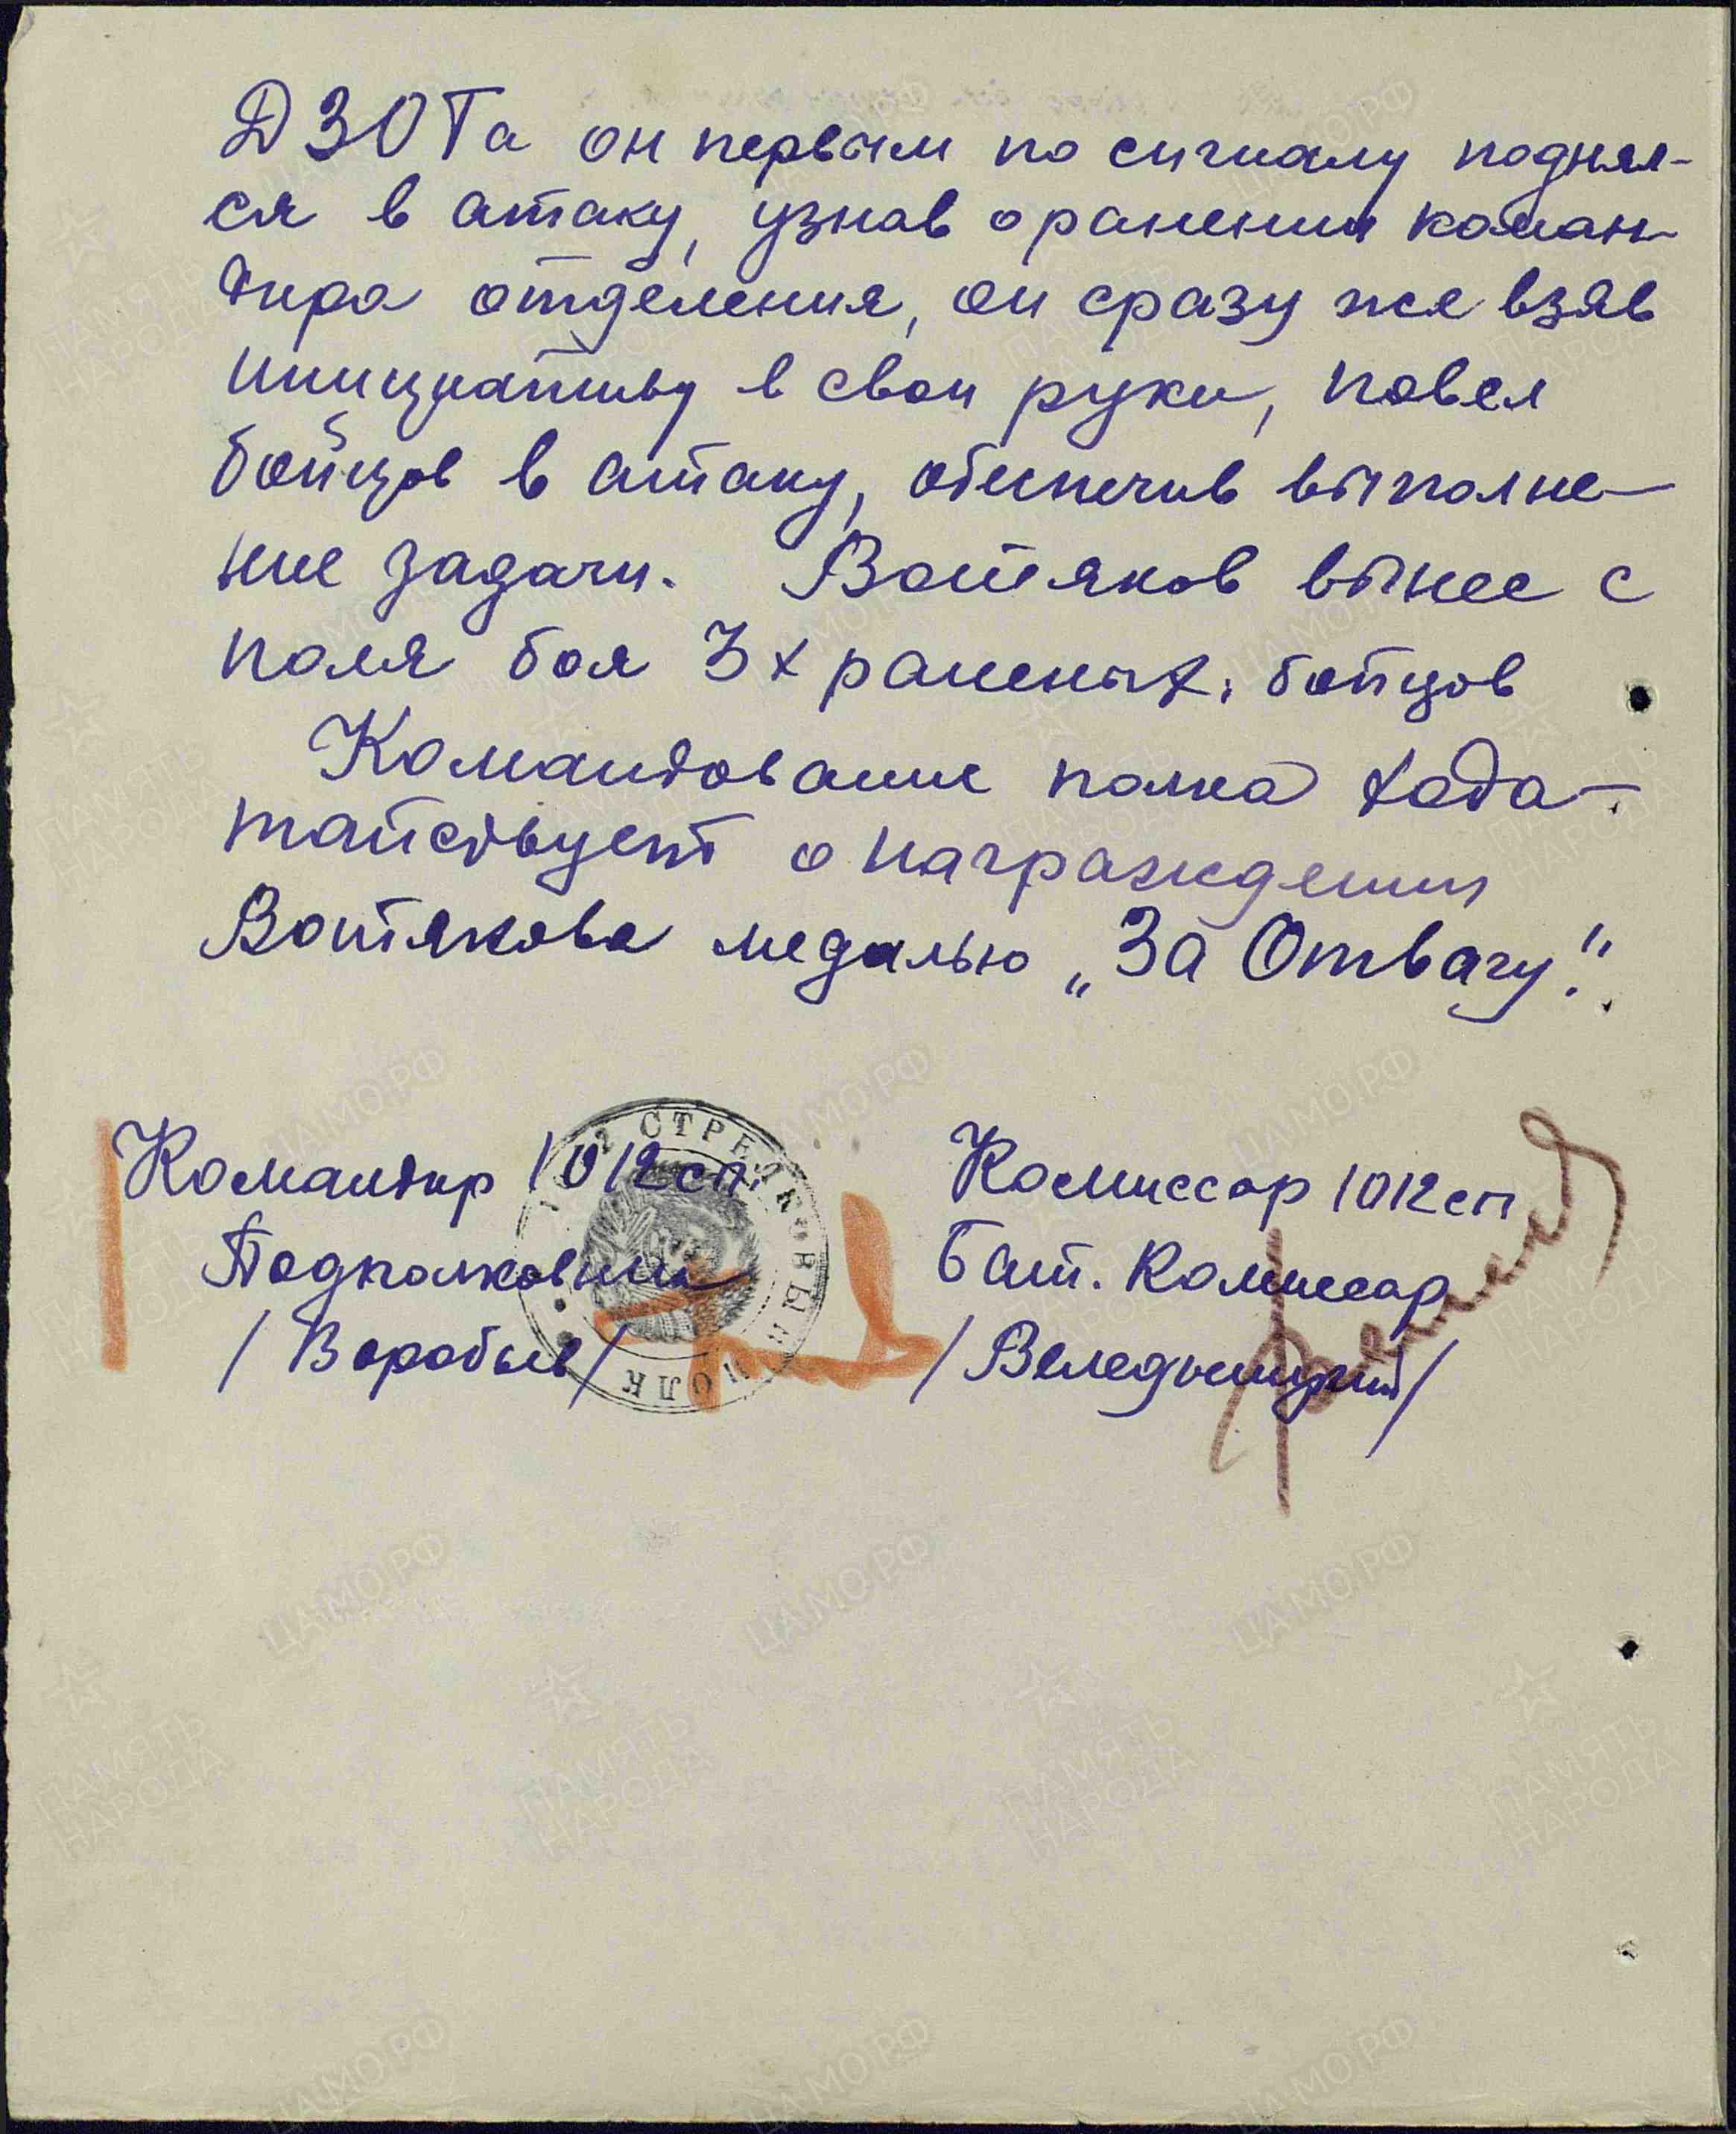 ДЗОТа он первым по сигналу поднял-
ся в атаку, узнав о ранении коман-
дира отделения, он сразу же взяв
инициативу в свои руки, повел
бойцов в атаку, обеспечив выполне-
ние задачи. Вотяков вынес с
поля боя 3х раненых бойцов
Командование полка хода-
тайствует о награждении
Вотякова медалью „За Отвагу".
Командир 1012 сп. Комиссар 1012 сп
Подполковник Бат. Комиссар
/Воробьев/ /Веледницкий/
СТРЕЛКОВЫЙ ПОЛК
ЦАМО.РФ
ПАМЯТЬ
НАРОДА